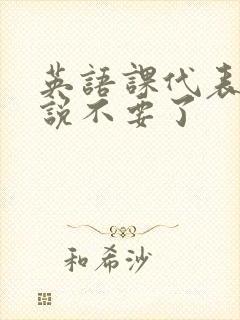 英語課代表
說不要了
和希沙